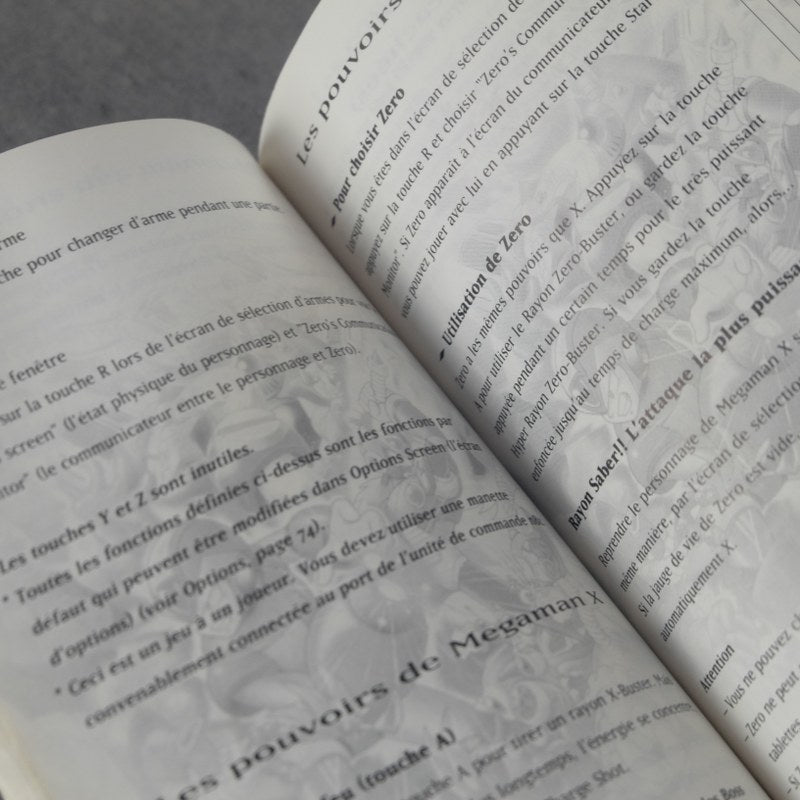 rme
che pour changer d'arme pendant une partie.
e fenêtre
sur la touche R lors de l'écran de sélection d'armes pour
screen" (l'état physique du personnage) et "Zero's Communica
itor" (le communicateur entre le personnage et Zero).
Les touches Y et Z sont inutiles.
* Toutes les fonctions définies ci-dessus sont les fonctions par
défaut qui peuvent être modifiées dans Options Screen (l'écran
d'options) (voir Options, page 74).
* Ceci est un jeu à un joueur. Vous devez utiliser une manette
convenablement connectée au port de l'unité de commande no.
Les pouvoirs de Megaman X
feu (touche A)
touche A pour tirer un rayon X-Buster. Mais
longtemps, l'énergie se concentre
Charge Shot.
Boss
Les pouvoirs
• Pour choisir Zero
Lorsque vous êtes dans l'écran de sélection de
appuyez sur la touche R et choisir "Zero's Commun
Monitor". Si Zero apparaît à l'écran du communicateur
vous pouvez jouer avec lui en appuyant sur la touche Star
• Utilisation de Zero
Zero a les mêmes pouvoirs que X. Appuyez sur la touche
A pour utiliser le Rayon Zero-Buster, ou gardez la touche
appuyée pendant un certain temps pour le très puissant
Hyper Rayon Zero-Buster. Si vous gardez la touche
enfoncée jusqu'au temps de charge maximum, alors...
Rayon Saber!! L'attaque la plus puissa
Reprendre le personnage de Megaman X
même manière, par l'écran de sélection
Si la jauge de vie de Zero est vide,
automatiquement X.
Attention
– Vous ne pouvez
– Zero ne peut
tablettes
– Si